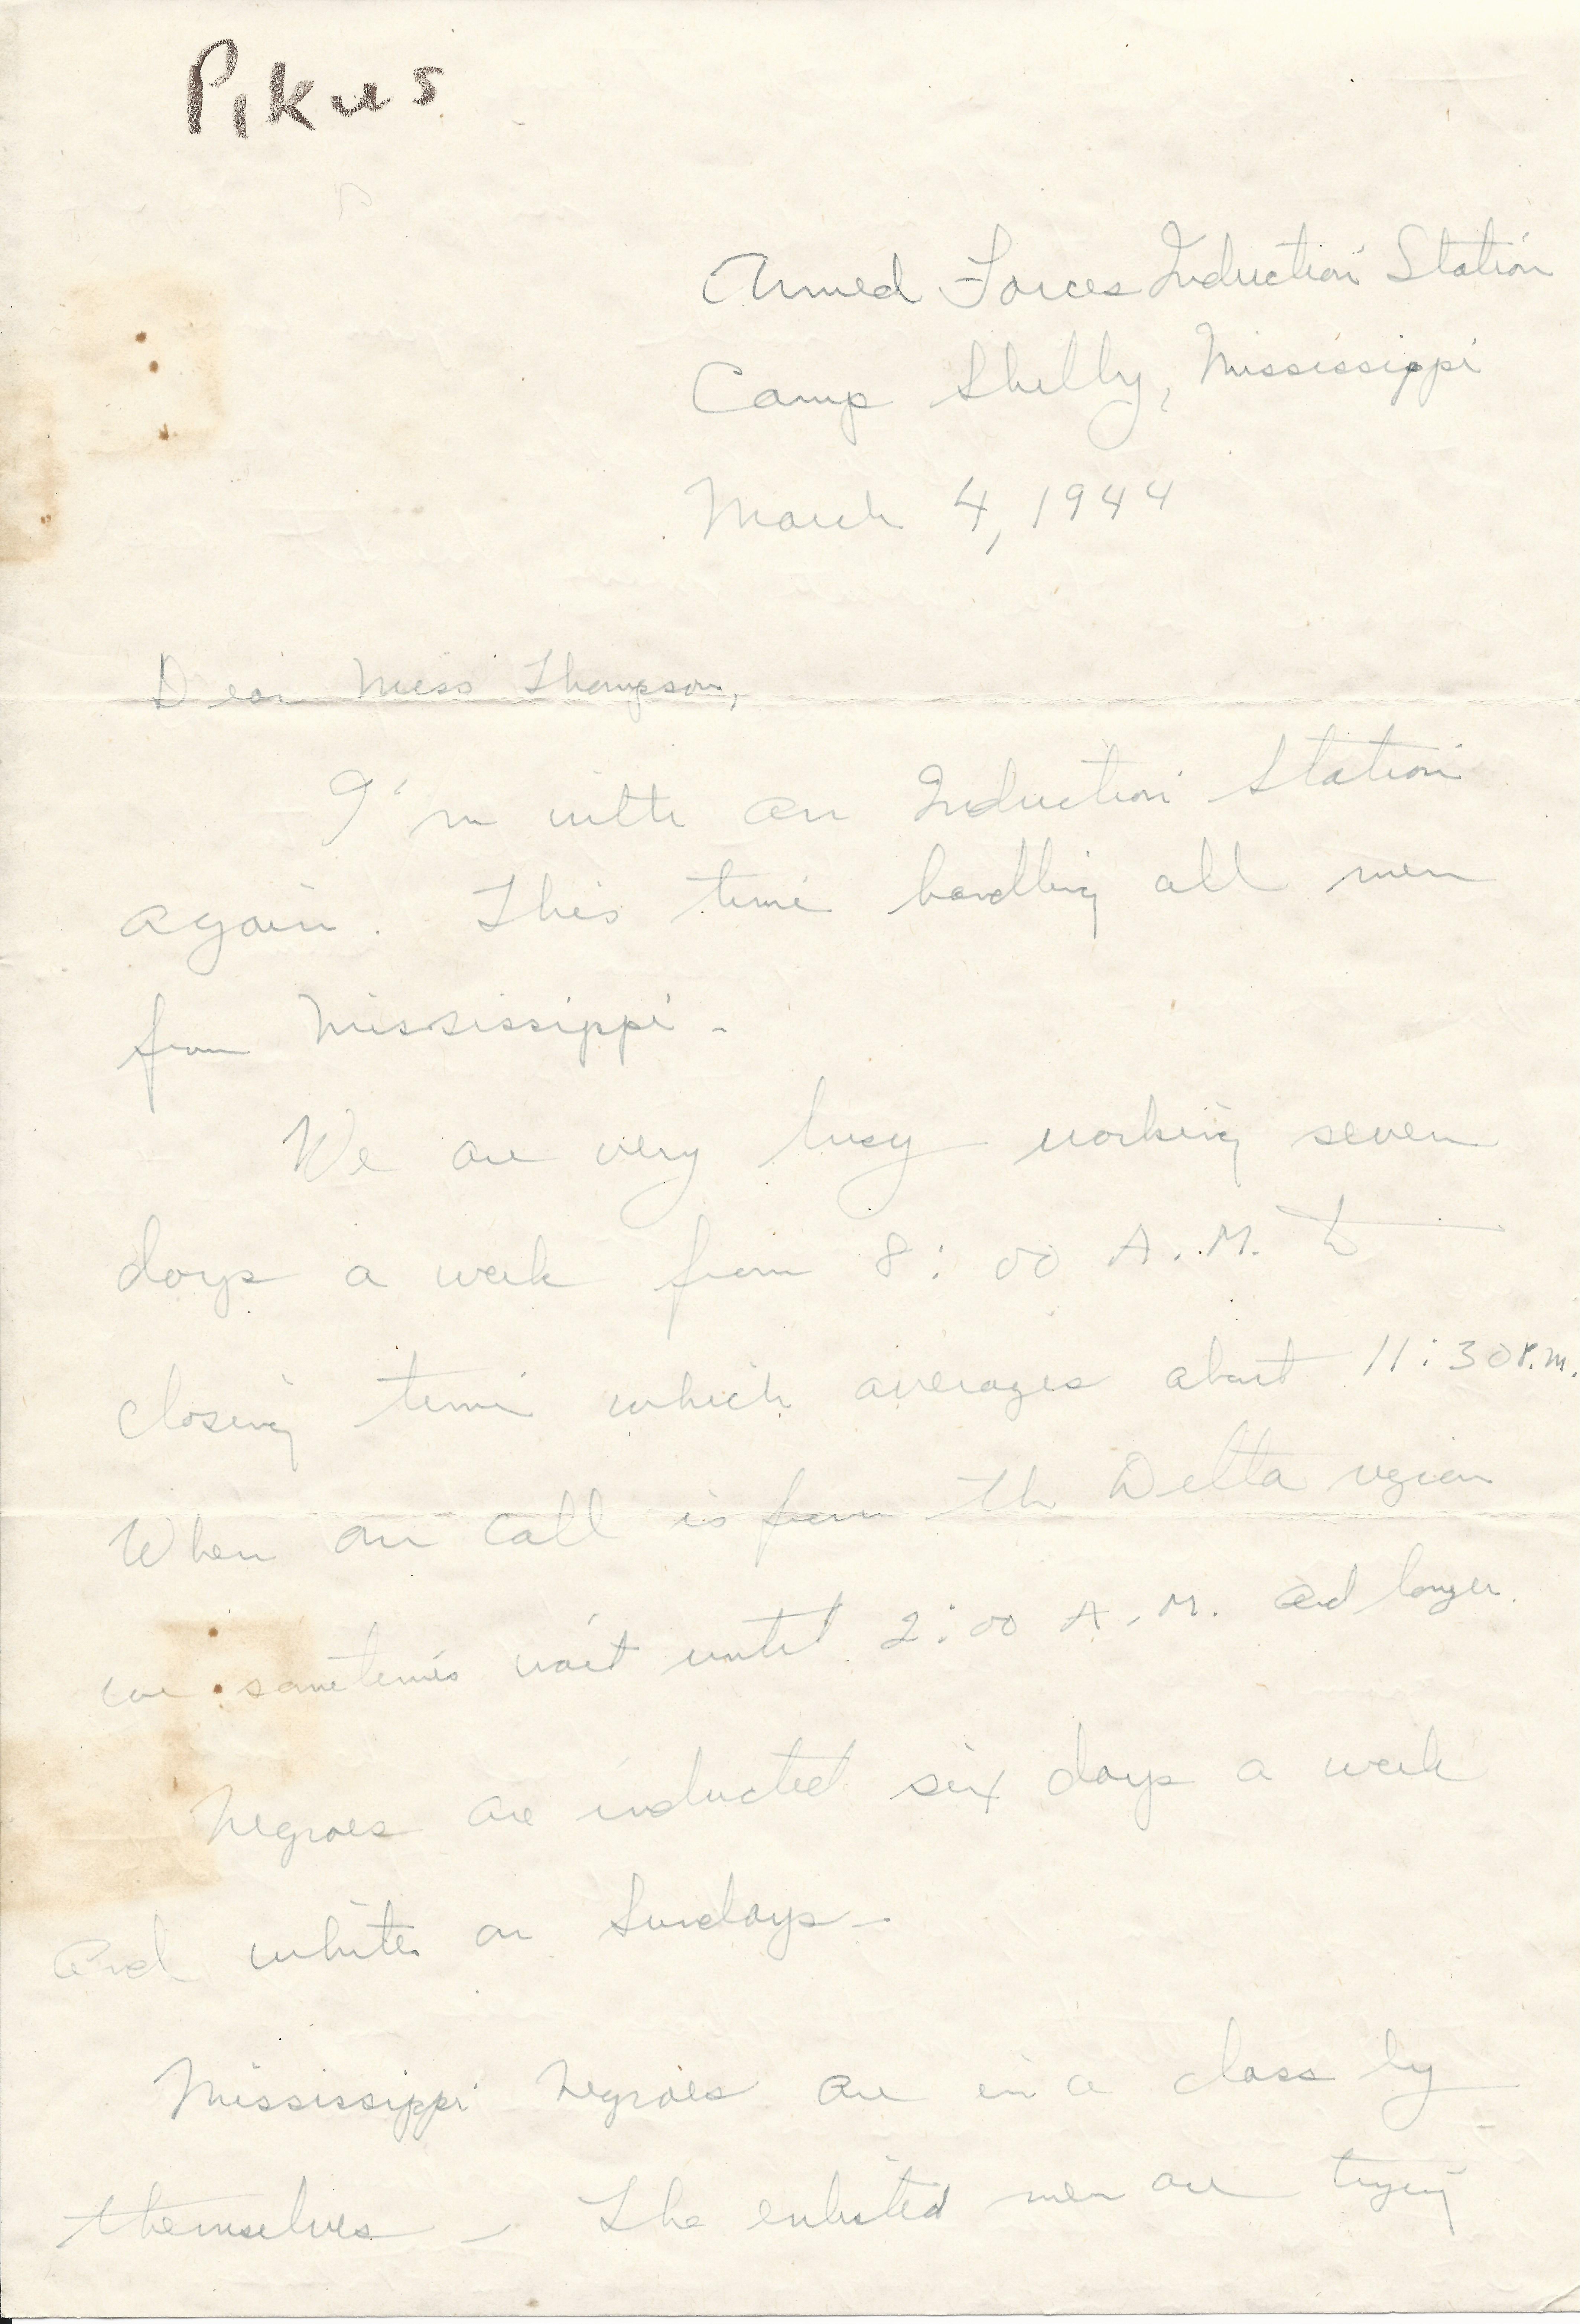 Pikus
Armed Forces Induction Station
Camp Shelby, Mississippi
March 4, 1944
Dear Miss Thompson,
I'm with an Induction Station
again. This time handling all men
from Mississippi.
We are very busy working seven
days a week from 8:00 A.M. to
closing time which averages about 11:30 P.M.
When our call is from the Delta region
we sometimes wait until 2:00 A.M. and longer.
Negroes are inducted six days a week
and whites on Sundays-
Mississippi Negroes are in a class by
themselves - The enlisted men are trying